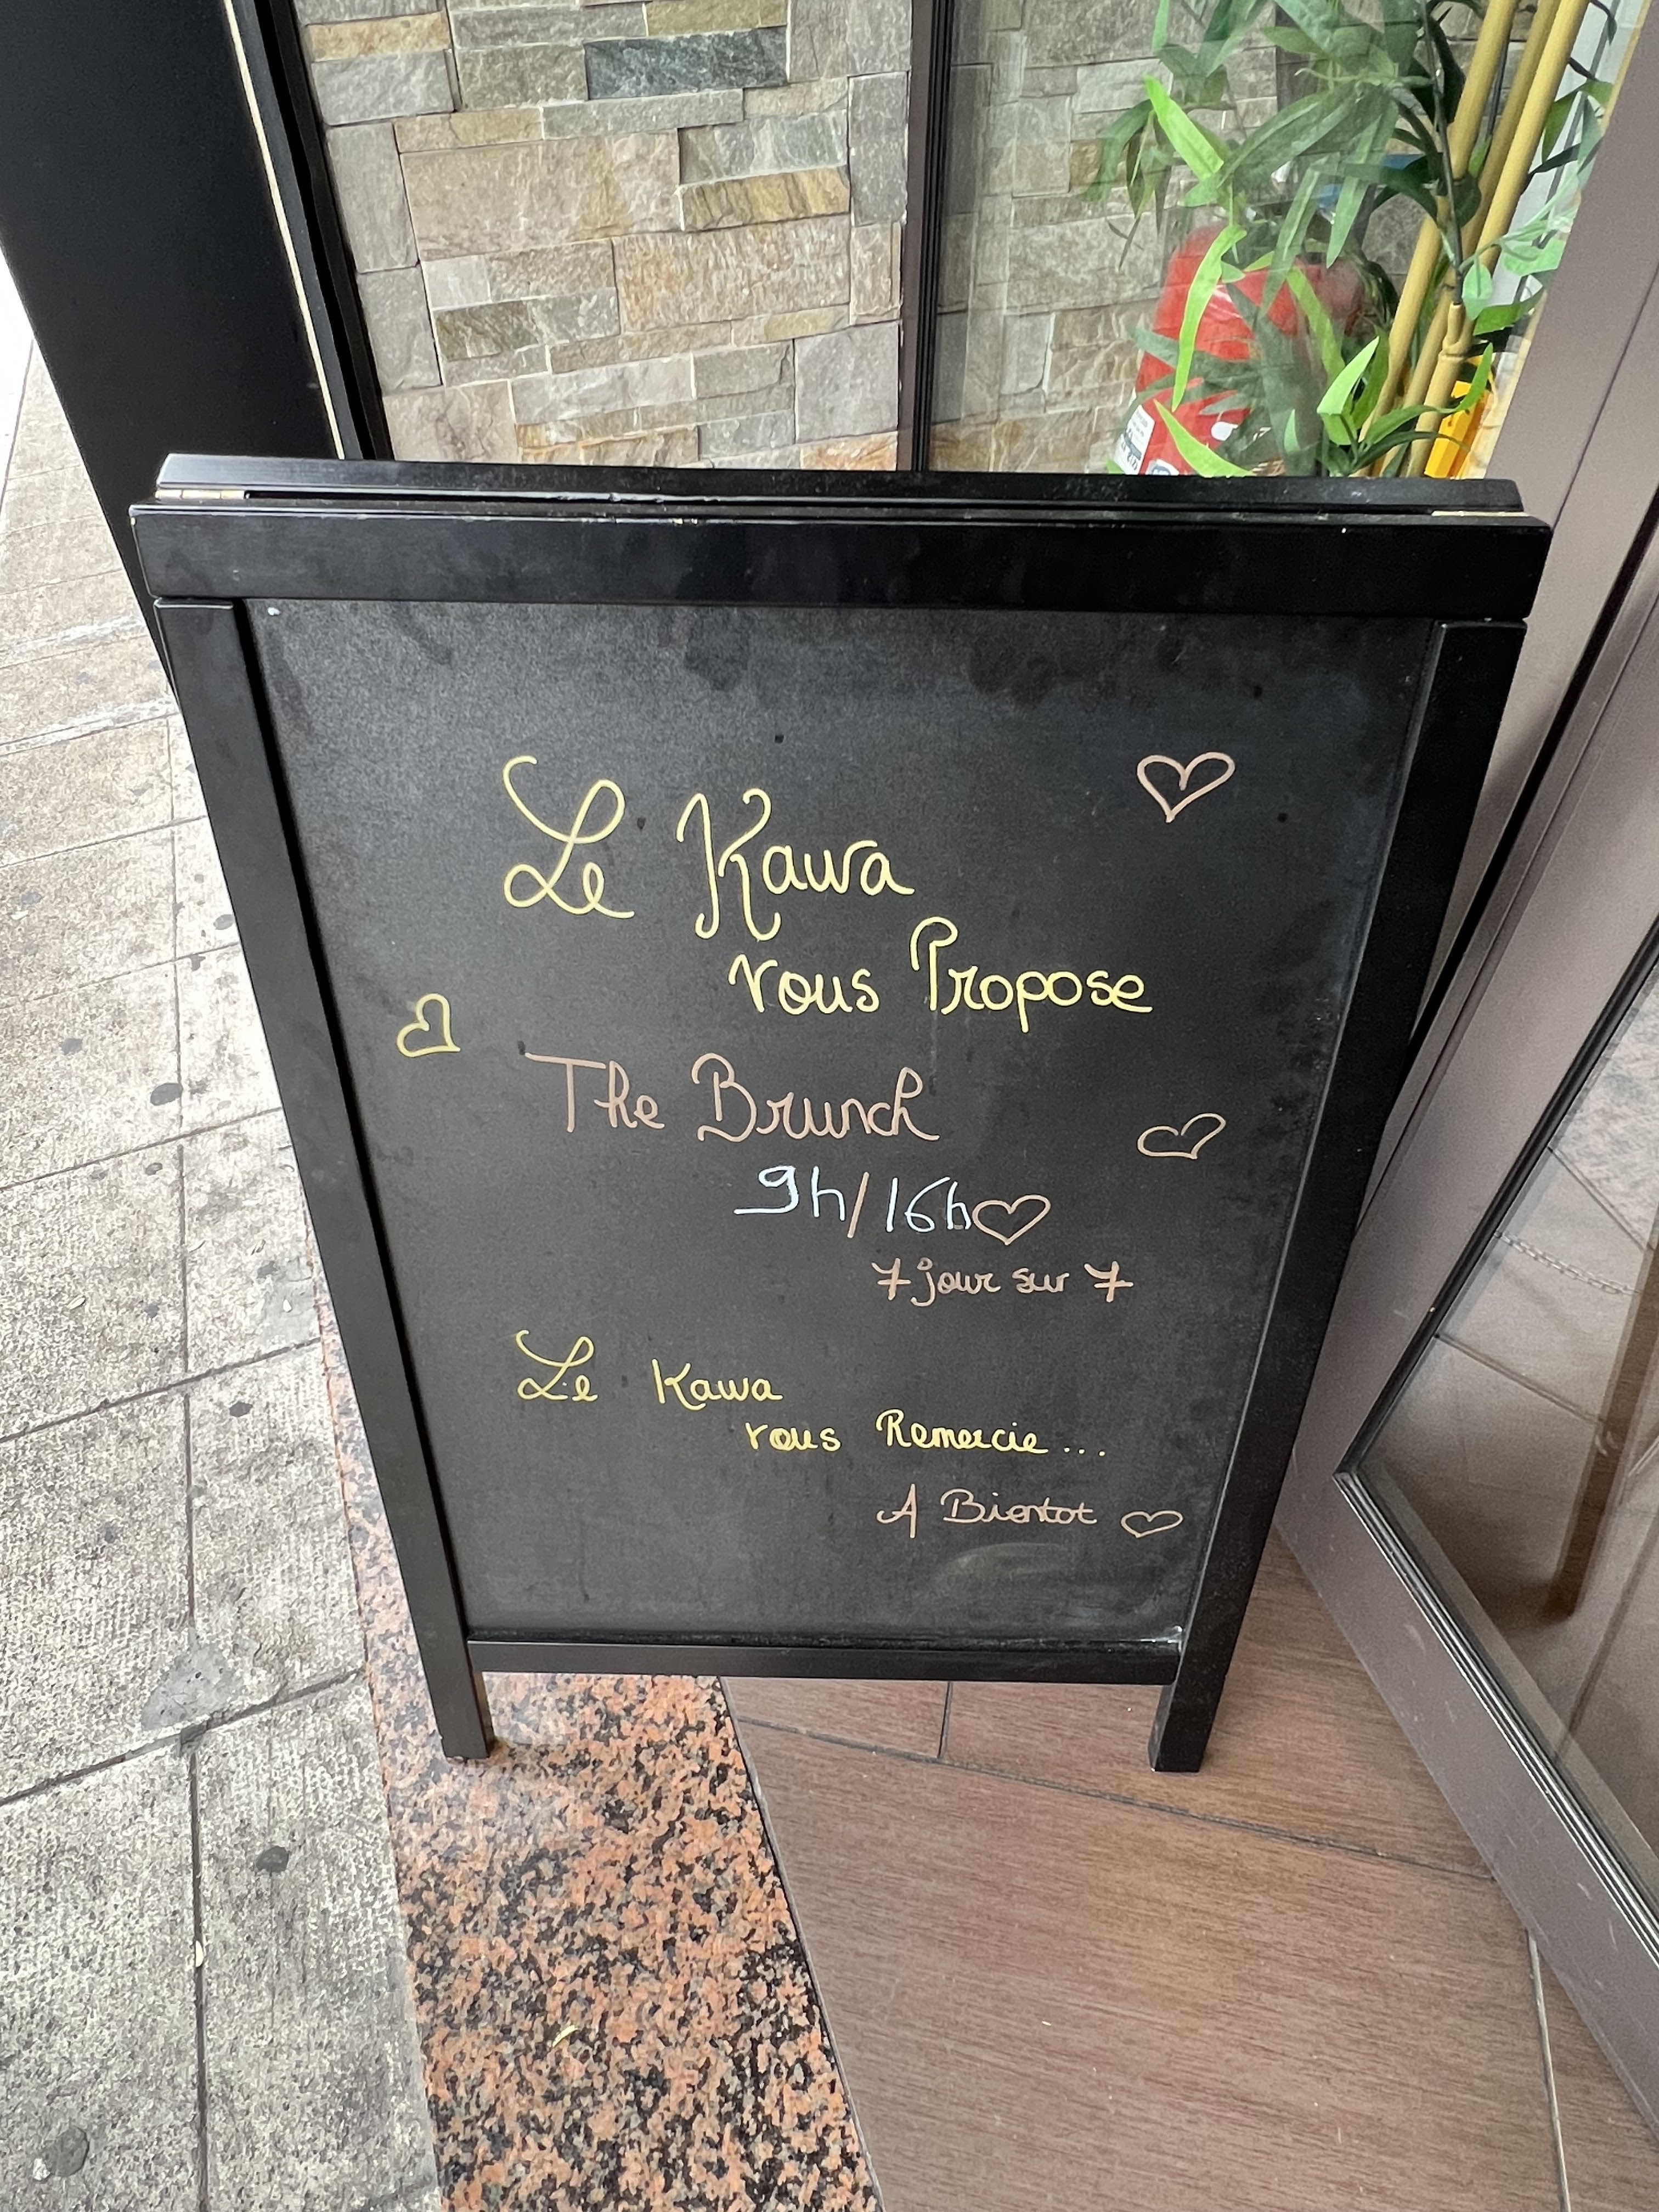 Le Kawa
vous Propose
The Brunch
9h/16h
7 jour sur 7
Le Kawa
vous Remercie...
A Bientot